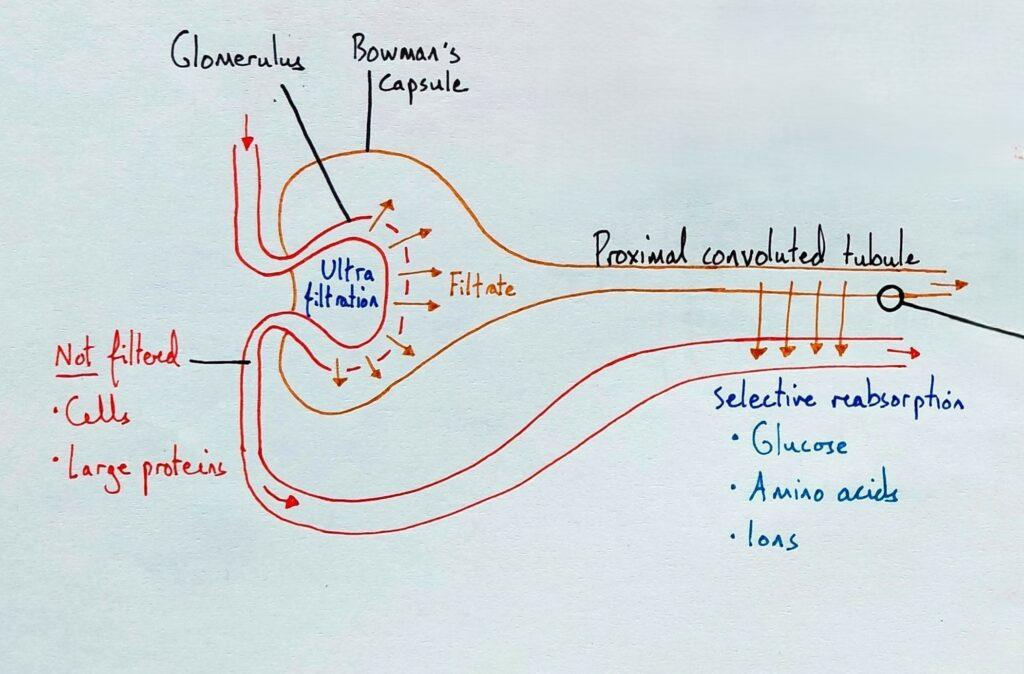 Glomerulus
Bowman's
Capsule
Proximal convoluted tubule
Ultra
filtration
Filtrate
Not filtered
• Cells
• Large proteins
Selective reabsorption
• Glucose
• Amino acids
• Ions